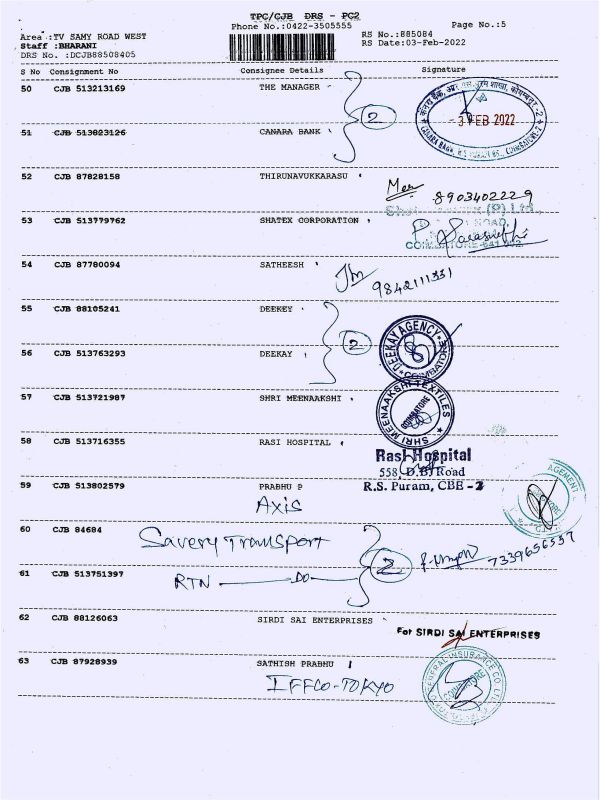 TPC/CJB DRS - PC2
Phone No.:0422-3505555
Page No.:5
Area :TV SAMY ROAD WEST
Staff :BHARANI
DRS No. :DCJB88508405
RS No.:885084
RS Date:03-Feb-2022
S No Consignment No Consignee Details Signature
50 CJB 513213169 THE MANAGER
2
- 3 FEB 2022
51 CJB 513823126 CANARA BANK
52 CJB 87828158 THIRUNAVUKKARASU
8903402229
53 CJB 513779762 SHATEX CORPORATION
54 CJB 87780094 SATHEESH
9842111331
55 CJB 88105241 DEEKEY
2
DEEKAY AGENCY
COIMBATORE
56 CJB 513763293 DEEKAY
57 CJB 513721987 SHRI MEENAAKSHI
SHRI MEENAAKSHI TEXTILES
COIMBATORE
58 CJB 513716355 RASI HOSPITAL
Rasi Hospital
558, D.B. Road
R.S. Puram, CBE - 2
59 CJB 513802579 PRABHU P
Axis
60 CJB 84684 Savery Transport
2
7339656537
61 CJB 513751397 RTN DO
62 CJB 88126063 SIRDI SAI ENTERPRISES
For SIRDI SAI ENTERPRISES
63 CJB 87928939 SATHISH PRABHU
IFFCO-TOKYO